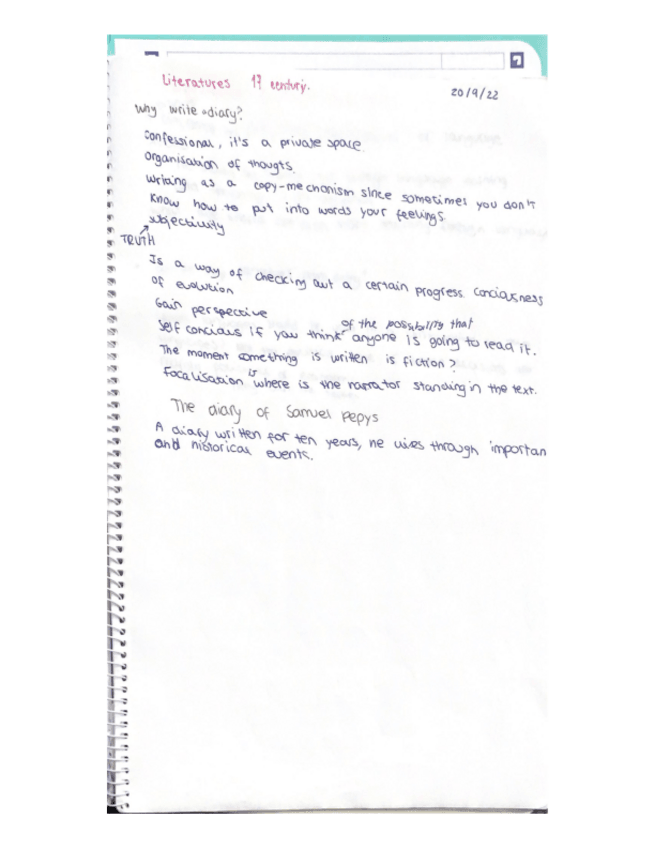 Literatures 17 century.
20/9/22
Why write a diary?
Confessional, it's a private space.
Organisation of thougts.
Writing as a copy-mechanism since sometimes you don't
know how to put into words your feelings.
subjectivity
TRUTH
Is a way of checking out a certain progress conciousness
of evolution
Gain perspective
of the possibility that
Self concious if you think anyone is going to read it.
The moment something is written is fiction?
Focalisation is where is the narrator standing in the text.
The diary of Samuel Pepys
A diary written for ten years, he lives through importan
and historical events.